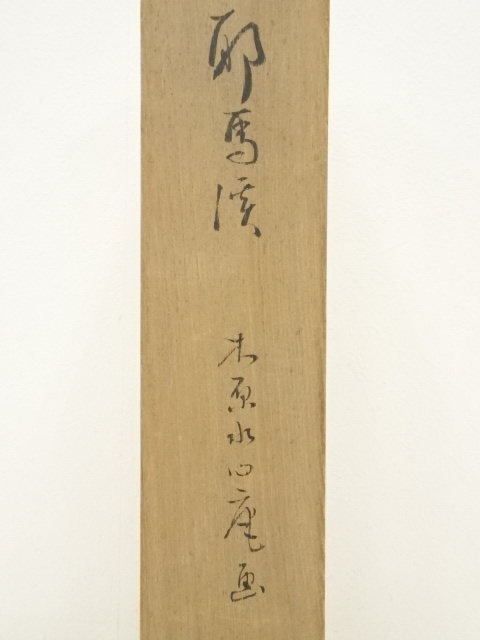 耶馬渓
木原水心庵画